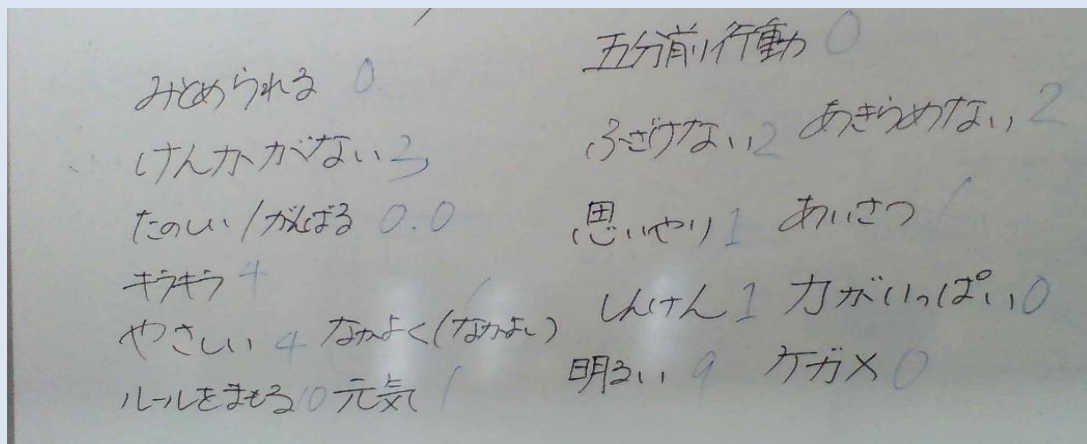 みとめられる 0
けんかがない 3
たのしい/がんばる 0.0
キラキラ 4
やさしい 4 なかよく(なかよい) 1
ルールをまもる 10 元気 1
五分前行動 0
ふざけない 2 あきらめない 2
思いやり 1 あいさつ 1
しんけん 1 力がいっぱい 0
明るい 9 ケガ× 0